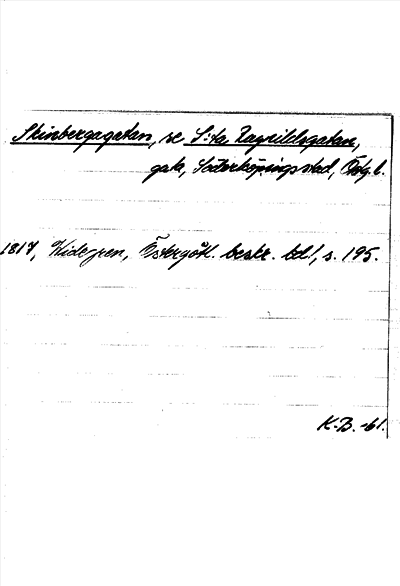 Skinbergagatan, se S:ta Ragnildsgatan,
gata, Söderköpings stad, Östg. l.
1817, Widegren, Östergötl. beskr. bd 1, s. 195.
K-B. -61.